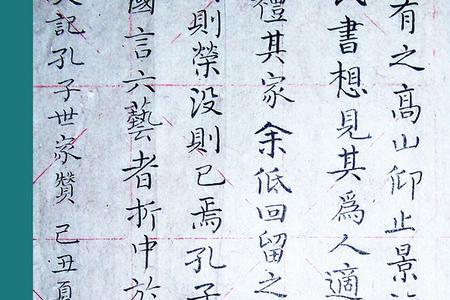 有之高山仰止景
書想見其爲人適
禮其家余低回留之
則榮没則已焉孔子
國言六藝者折中於
記孔子世家贊 己丑夏